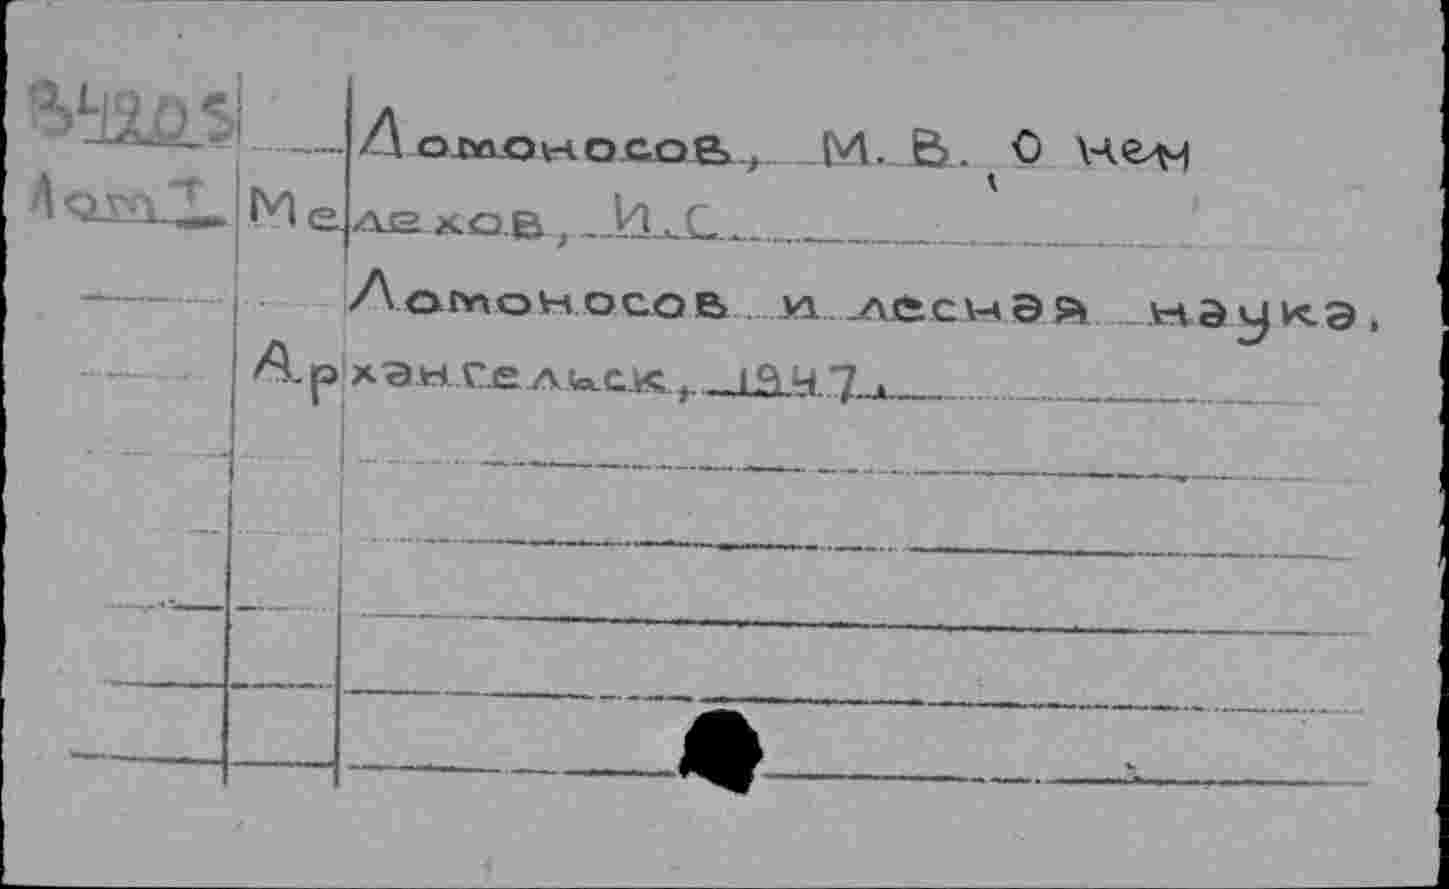 Ломоносов, М. В. О нем
Мелехов, И.С.
Ломоносов и лесная наука.
Архангельск, 1947.